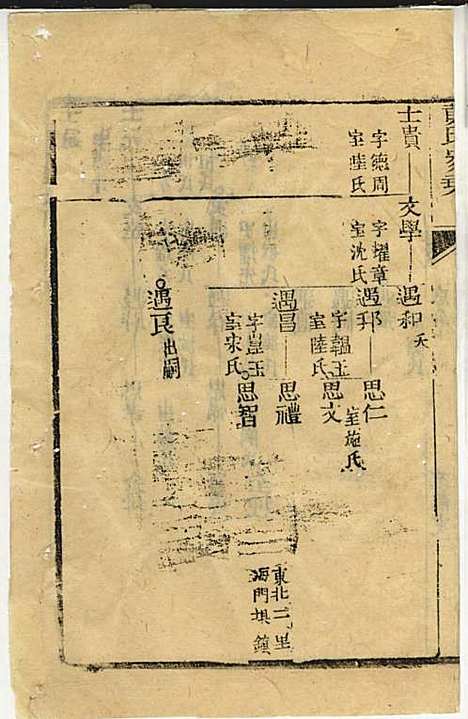 士貴
字德周
室陸氏
文學
字燿章
室沈氏
遇和
夭
遇邦
字韞玉
室陸氏
思仁
室施氏
思文
遇昌
字崑玉
室宋氏
思禮
思智
遇良
出嗣
東北二里
海門埧鎮